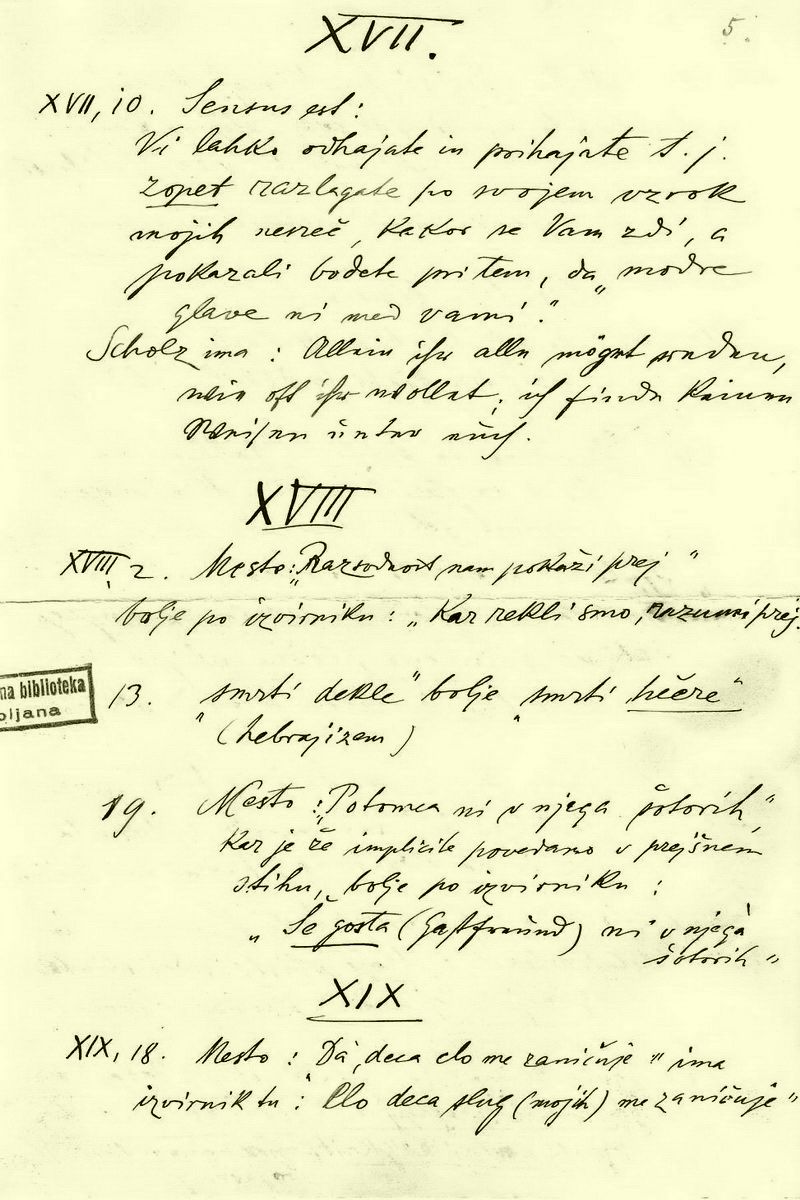 XVII.
5.
XVII, 10. Sensus est:
Vi lahko odhajate in prihajate t. j.
zopet razlagate po svojem vzrok
mojih nesreč, kakor se Vam zdi, a
pokazali bodete pri tem, da „modre
glave ni med vami".
Scholz ima: Allein ihr alle möget reden,
wie oft ihr wollet; ich finde keinen
Weisen unter euch.
XVIII
XVIII, 2. Mesto: „Razsodnost nam pokaži prej"
bolje po izvirniku: „Kar rekli smo, razumi prej.
na biblioteka
ljana
13. „smrti dekle" bolje „smrti hčere"
(hebrajizem)
19. Mesto: „Potomca ni v njega šotorih"
kar je že implicite povedano v prejšnem
stihu, bolje po izvirniku:
„Še gosta (Gastfreund) ni v njega
šotorih"
XIX
XIX, 18. Mesto: „Da, deca clo me zaničuje" ima
izvirnik tu: „Clo deca slug (mojih) me zaničuje"